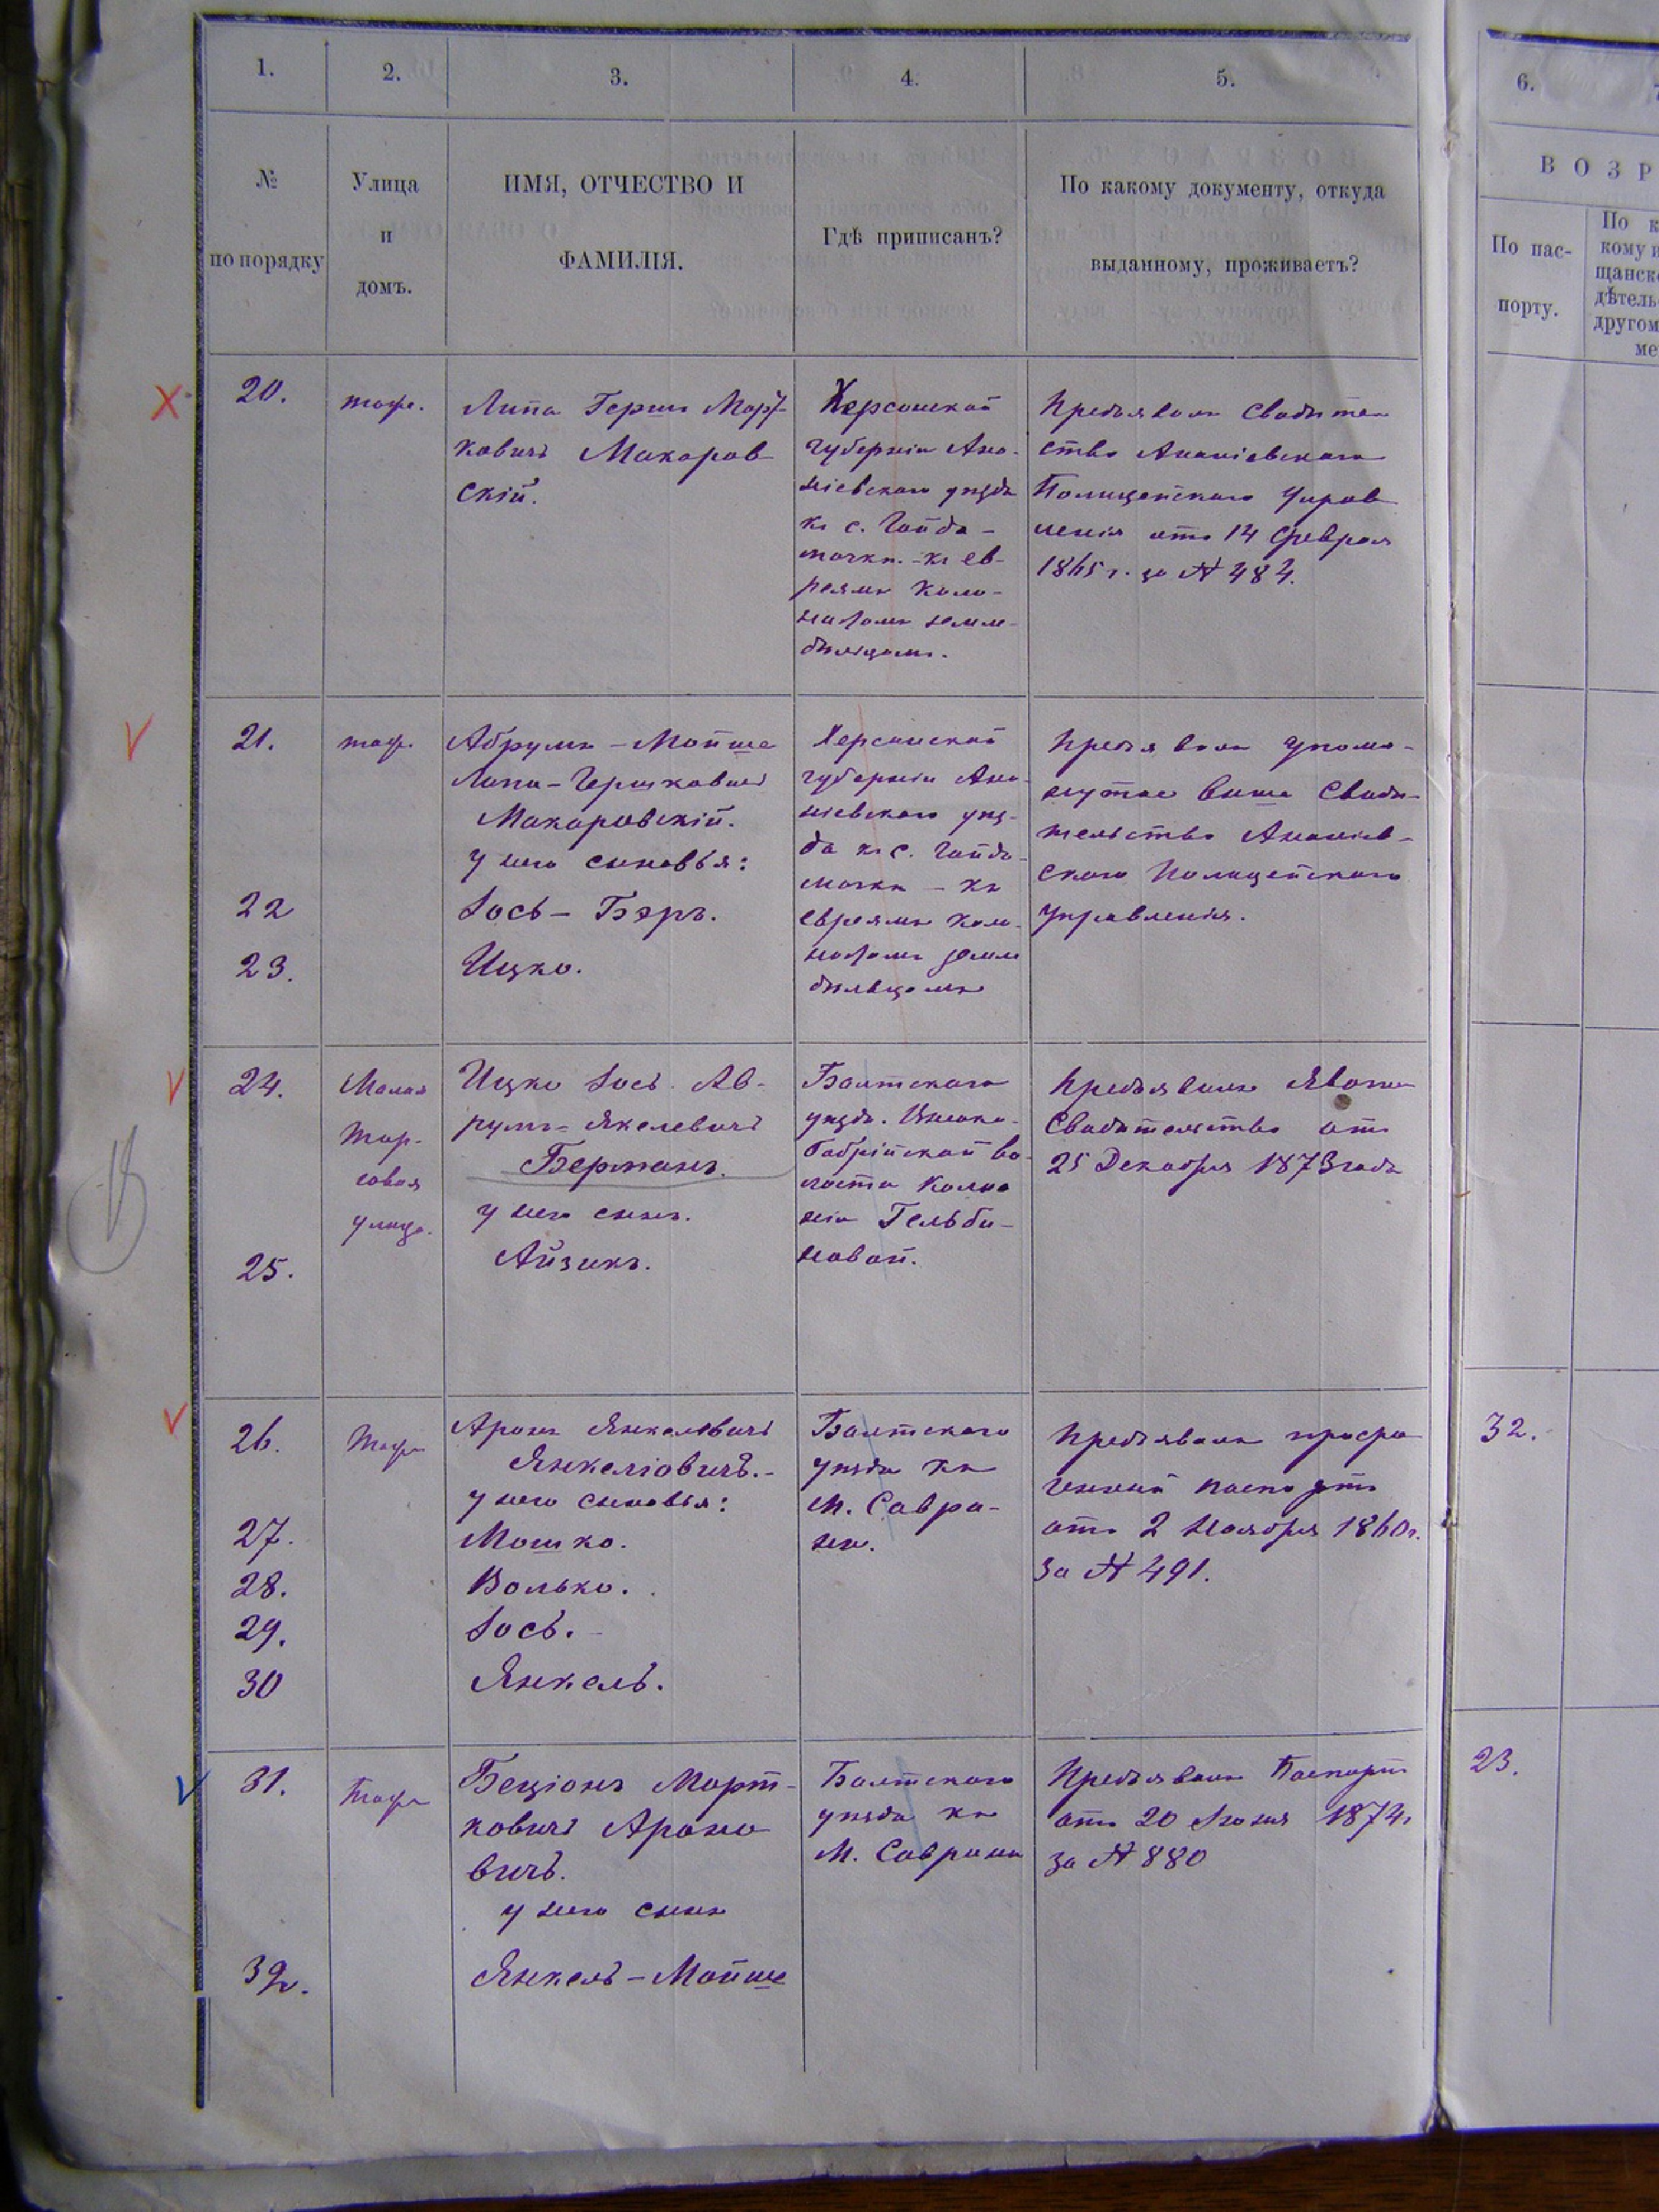 1. 2. 3. 4. 5. 6.
№ по порядку
Улица и домъ.
ИМЯ, ОТЧЕСТВО И ФАМИЛІЯ.
Гдѣ приписанъ?
По какому документу, откуда выданному, проживаетъ?
ВОЗР
По пас-
порту.
По к
кому м
щанск
дѣтель
другом
ме
20.
тоже.
Липа Герш Морт-
ковичъ Макаров-
скій.
Херсонской
губерніи Ана-
ніевского уѣзда
къ с. Гайда-
мачкѣ - къ ев-
реямъ коло-
нистамъ земле-
дѣльцамъ.
Предъявилъ Свидѣтель
ство Ананіевскаго
Полицейскаго Управ
ленія отъ 14 Февраля
1865 г. за № 484.
21.
тоже.
Абрумъ-Мойше
Липа-Гершковичъ
Макаровскій.
у него сыновья:
22
Іось-Бэръ.
23.
Ицко.
Херсонской
губерніи Ана-
ніевского уѣз-
да къ с. Гайда-
мачкѣ - къ
евреямъ коло-
нистамъ земле
дѣльцамъ
Предъявилъ упомя-
нутое выше Свидѣ-
тельство Ананіев-
ского Полицейскаго
Управленія.
24.
Малая
Тор-
говая
улица.
Ицко Іось Аб-
румъ-Якелевичъ
Берманъ.
у него сынъ.
25.
Айзикъ.
Балтского
уѣзда.
волости Коло
ніи Гельби-
новой.
Предъявилъ Явочн
Свидѣтельство отъ
25 Декабря 1873 года
26.
Тоже
Аронъ Янкелевичъ
Янкеліовичъ.-
у него сыновья:
27.
Мошко.
28.
Волько.
29.
Іось.
30
Янкель.
Балтского
уѣзда къ
м. Савра-
ни.
Предъявилъ просро
ченный паспортъ
отъ 2 Ноября 1860 г.
за № 491.
32.
31.
Тоже
Беціонъ Морт-
ковичъ Ароно
вичъ.
у него сынъ
32.
Янкель-Мойше
Балтского
уѣзда къ
м. Саврани
Предъявилъ Паспортъ
отъ 20 Іюня 1874 г
за № 880
23.